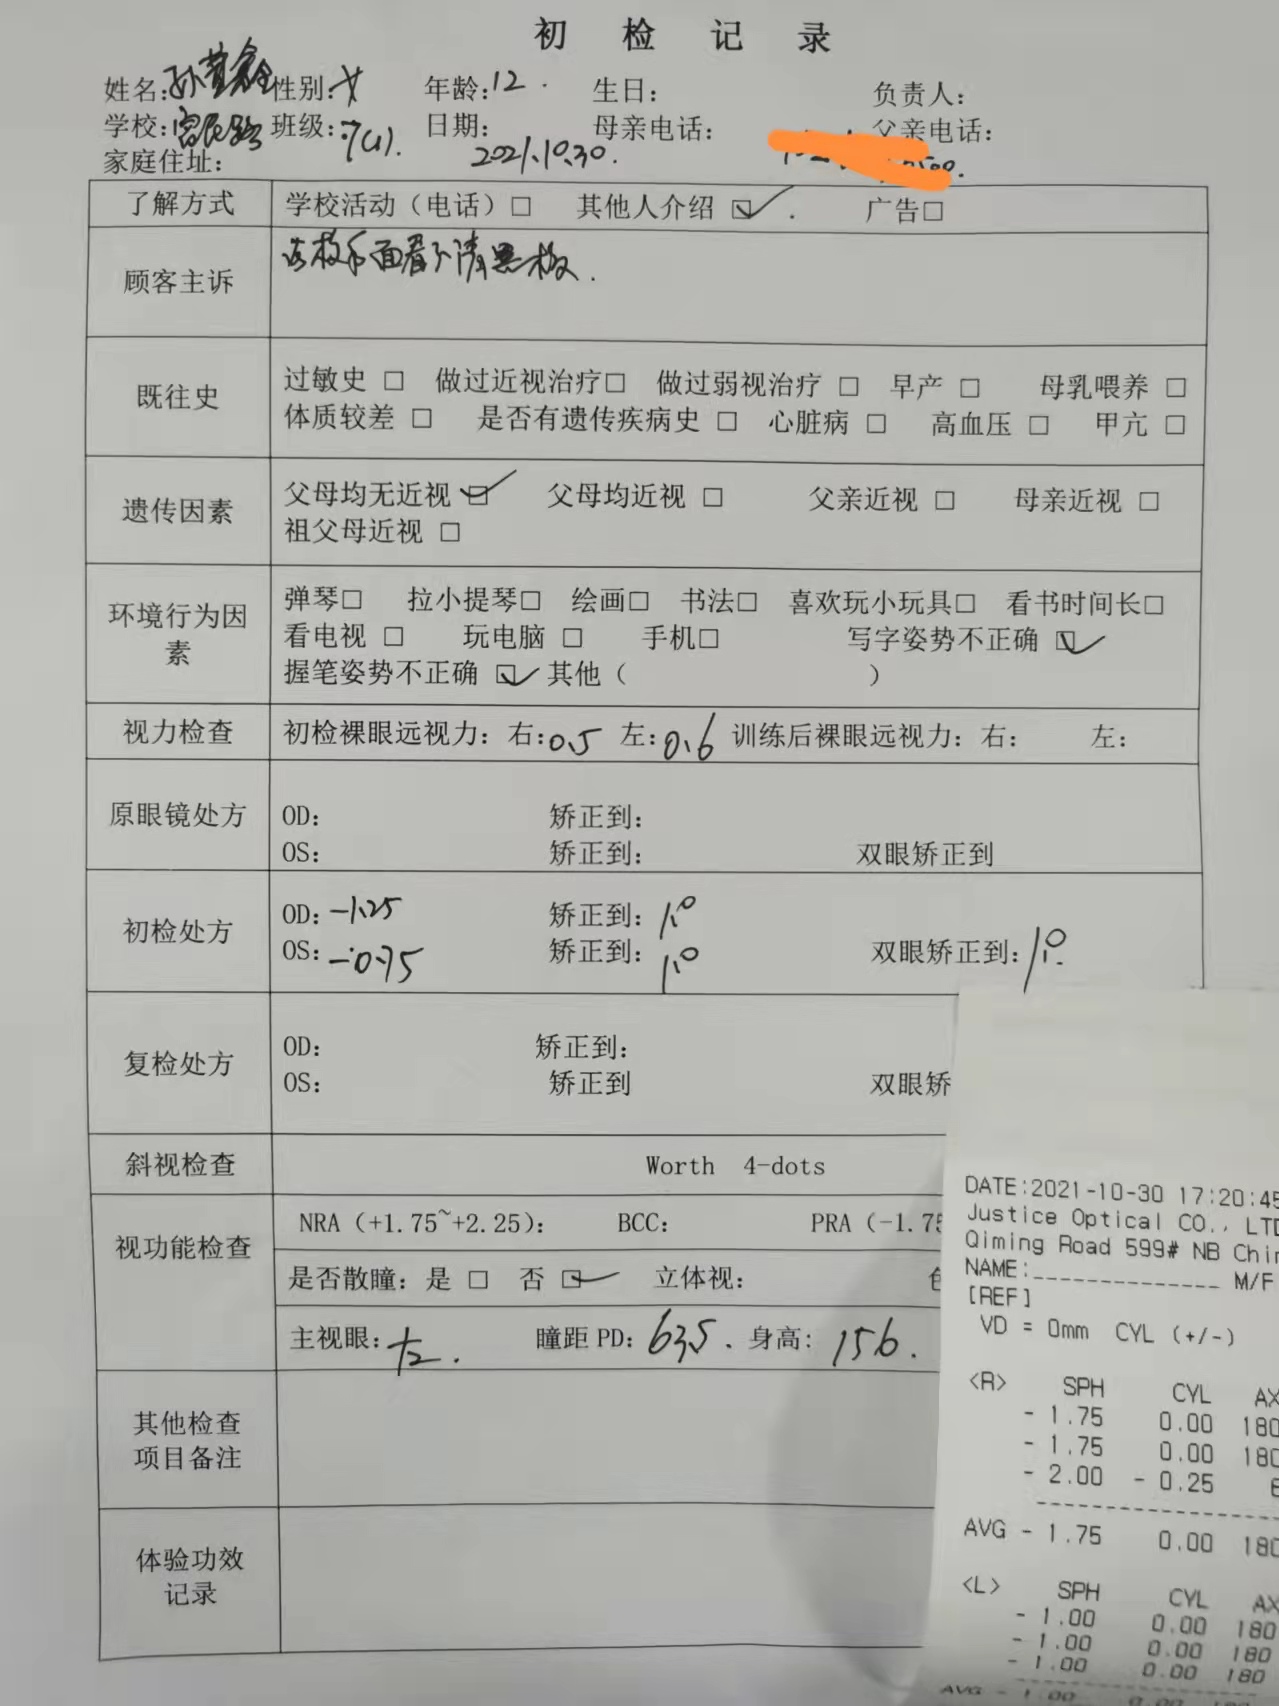 初 检 记 录
姓名: 性别:女 年龄:12. 生日: 负责人:
学校:富民路 班级:7(1). 日期: 母亲电话: 父亲电话:
家庭住址: 2021.10.30.
了解方式 学校活动（电话）□ 其他人介绍 ☑. 广告□
顾客主诉 看不清黑板.
既往史 过敏史 □ 做过近视治疗□ 做过弱视治疗 □ 早产 □ 母乳喂养 □
体质较差 □ 是否有遗传疾病史 □ 心脏病 □ 高血压 □ 甲亢 □
遗传因素 父母均无近视 ☑ 父母均近视 □ 父亲近视 □ 母亲近视 □
祖父母近视 □
环境行为因素 弹琴□ 拉小提琴□ 绘画□ 书法□ 喜欢玩小玩具□ 看书时间长□
看电视 □ 玩电脑 □ 手机□ 写字姿势不正确 ☑
握笔姿势不正确 ☑ 其他（ ）
视力检查 初检裸眼远视力: 右:0.5 左:0.6 训练后裸眼远视力: 右: 左:
原眼镜处方 OD: 矫正到:
OS: 矫正到: 双眼矫正到
初检处方 OD: -1.25 矫正到: 1.0
OS: -0.75 矫正到: 1.0 双眼矫正到: 1.0
复检处方 OD: 矫正到:
OS: 矫正到 双眼矫
斜视检查 Worth 4-dots
视功能检查 NRA（+1.75~+2.25）: BCC: PRA（-1.75
是否散瞳: 是 □ 否 ☑ 立体视:
主视眼: 右. 瞳距 PD: 63.5. 身高: 156.
其他检查
项目备注
体验功效
记录
DATE:2021-10-30 17:20:45
Justice Optical CO., LTD
Qiming Road 599# NB Chin
NAME:_____________ M/F
[REF]
VD = 0mm CYL (+/-)
<R> SPH CYL AX
- 1.75 0.00 180
- 1.75 0.00 180
- 2.00 - 0.25
AVG - 1.75 0.00 180
<L> SPH CYL AX
- 1.00 0.00 180
- 1.00 0.00 180
- 1.00 0.00 180
AVG - 1.00 0.00 180